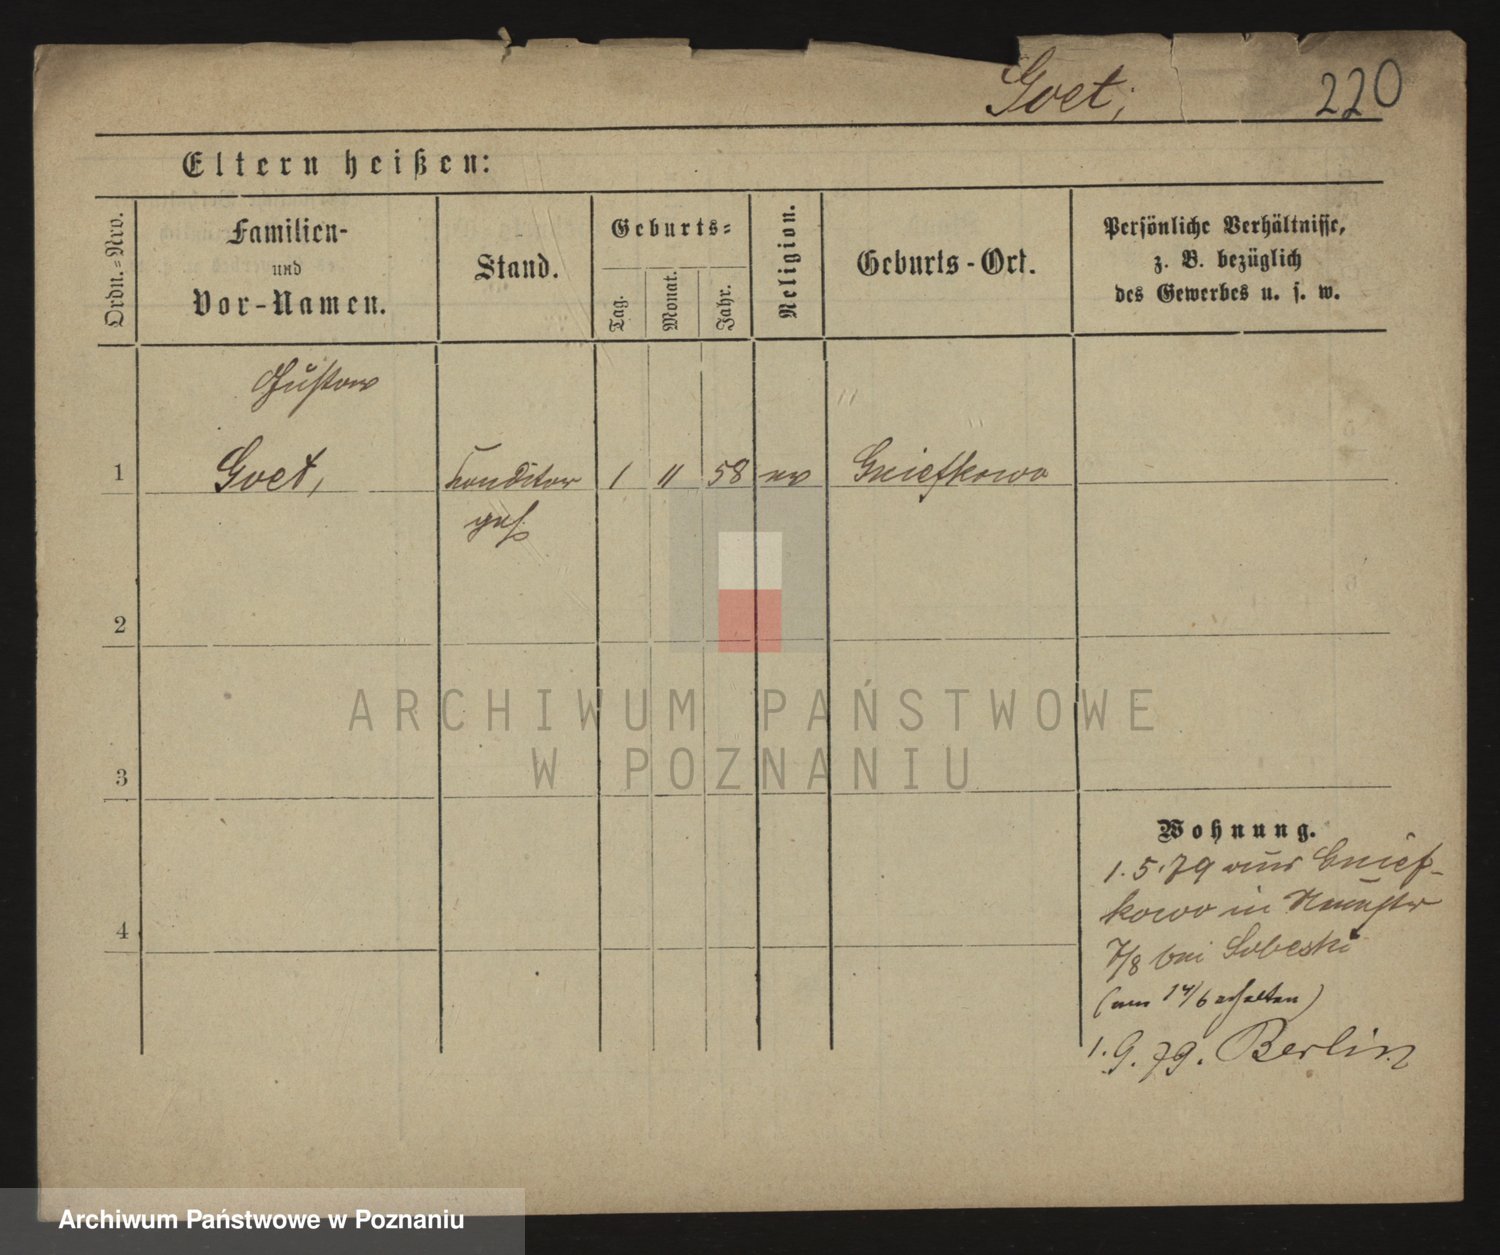 Goet,
220
Eltern heißen:
Ordn.-Nro.
Familien-
und
Vor-Namen.
Stand.
Geburts-
Tag.
Monat.
Jahr.
Religion.
Geburts-Ort.
Persönliche Verhältnisse,
z. B. bezüglich
des Gewerbes u. s. w.
Gustav
1 Goet, Konditor 1 " 58 ev Gniefkowo
2
3
4
Wohnung.
1.5.79 aus Gnief-
kowo in
7/8 bei Sobeski
(am 14/6 erhalten)
1.9.79. Berlin
ARCHIWUM PAŃSTWOWE
W POZNANIU
Archiwum Państwowe w Poznaniu